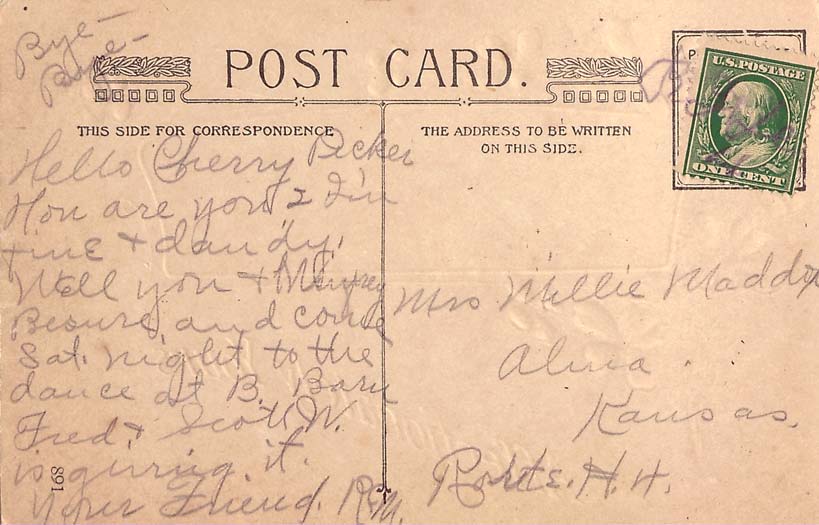 Bye-
Bye-
POST CARD.
THIS SIDE FOR CORRESPONDENCE
THE ADDRESS TO BE WRITTEN
ON THIS SIDE.
U.S. POSTAGE
ONE CENT
Hello Cherry Pecker
How are you? I'm
fine & dandy.
Well you &
Besure and come
Sat. night to the
dance at B. Barn
Fred & Scott W.
is giving it.
Your Friend.
891
Mrs Millie Maddox
Alma.
Kansas.
Route.